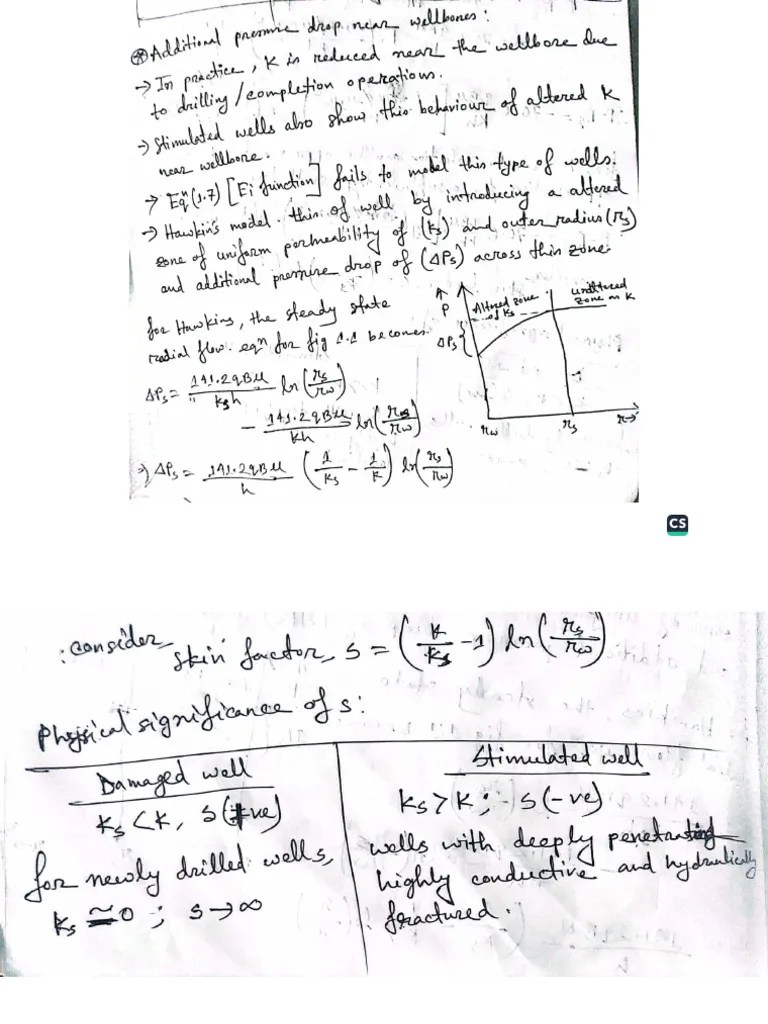 ⊛ Additional pressure drop near wellbores:
→ In practice, K is reduced near the wellbore due
to drilling/completion operations.
→ Stimulated wells also show this behaviour of altered K
near wellbore.
→ Eqⁿ(1.7) [Ei function] fails to model this type of wells.
→ Hawkin's model. this of well by introducing a altered
zone of uniform permeability of (ks) and outer radius (rs)
and additional pressure drop of (ΔPs) across this zone.
for Hawkins, the steady state
radial flow. eqⁿ for fig 1.1 becomes.
ΔPs = 141.2qBμ/ksh ln(rs/rw)
- 141.2qBμ/kh ln(rs/rw)
⇒ ΔPs = 141.2qBμ/h (1/ks - 1/k) ln(rs/rw)
↑ P
Altered zone
of ks
unaltered
zone K
ΔPs
rw
rs
r→
CS
:consider,
skin factor, s = (k/ks - 1) ln(rs/rw)
Physical significance of s:
Damaged well
ks < k, s(+ve)
for newly drilled wells,
ks ≃ 0 ; s → ∞
Stimulated well
ks > k ; s(-ve)
wells with deeply penetrating
highly conductive and hydraulically
fractured.